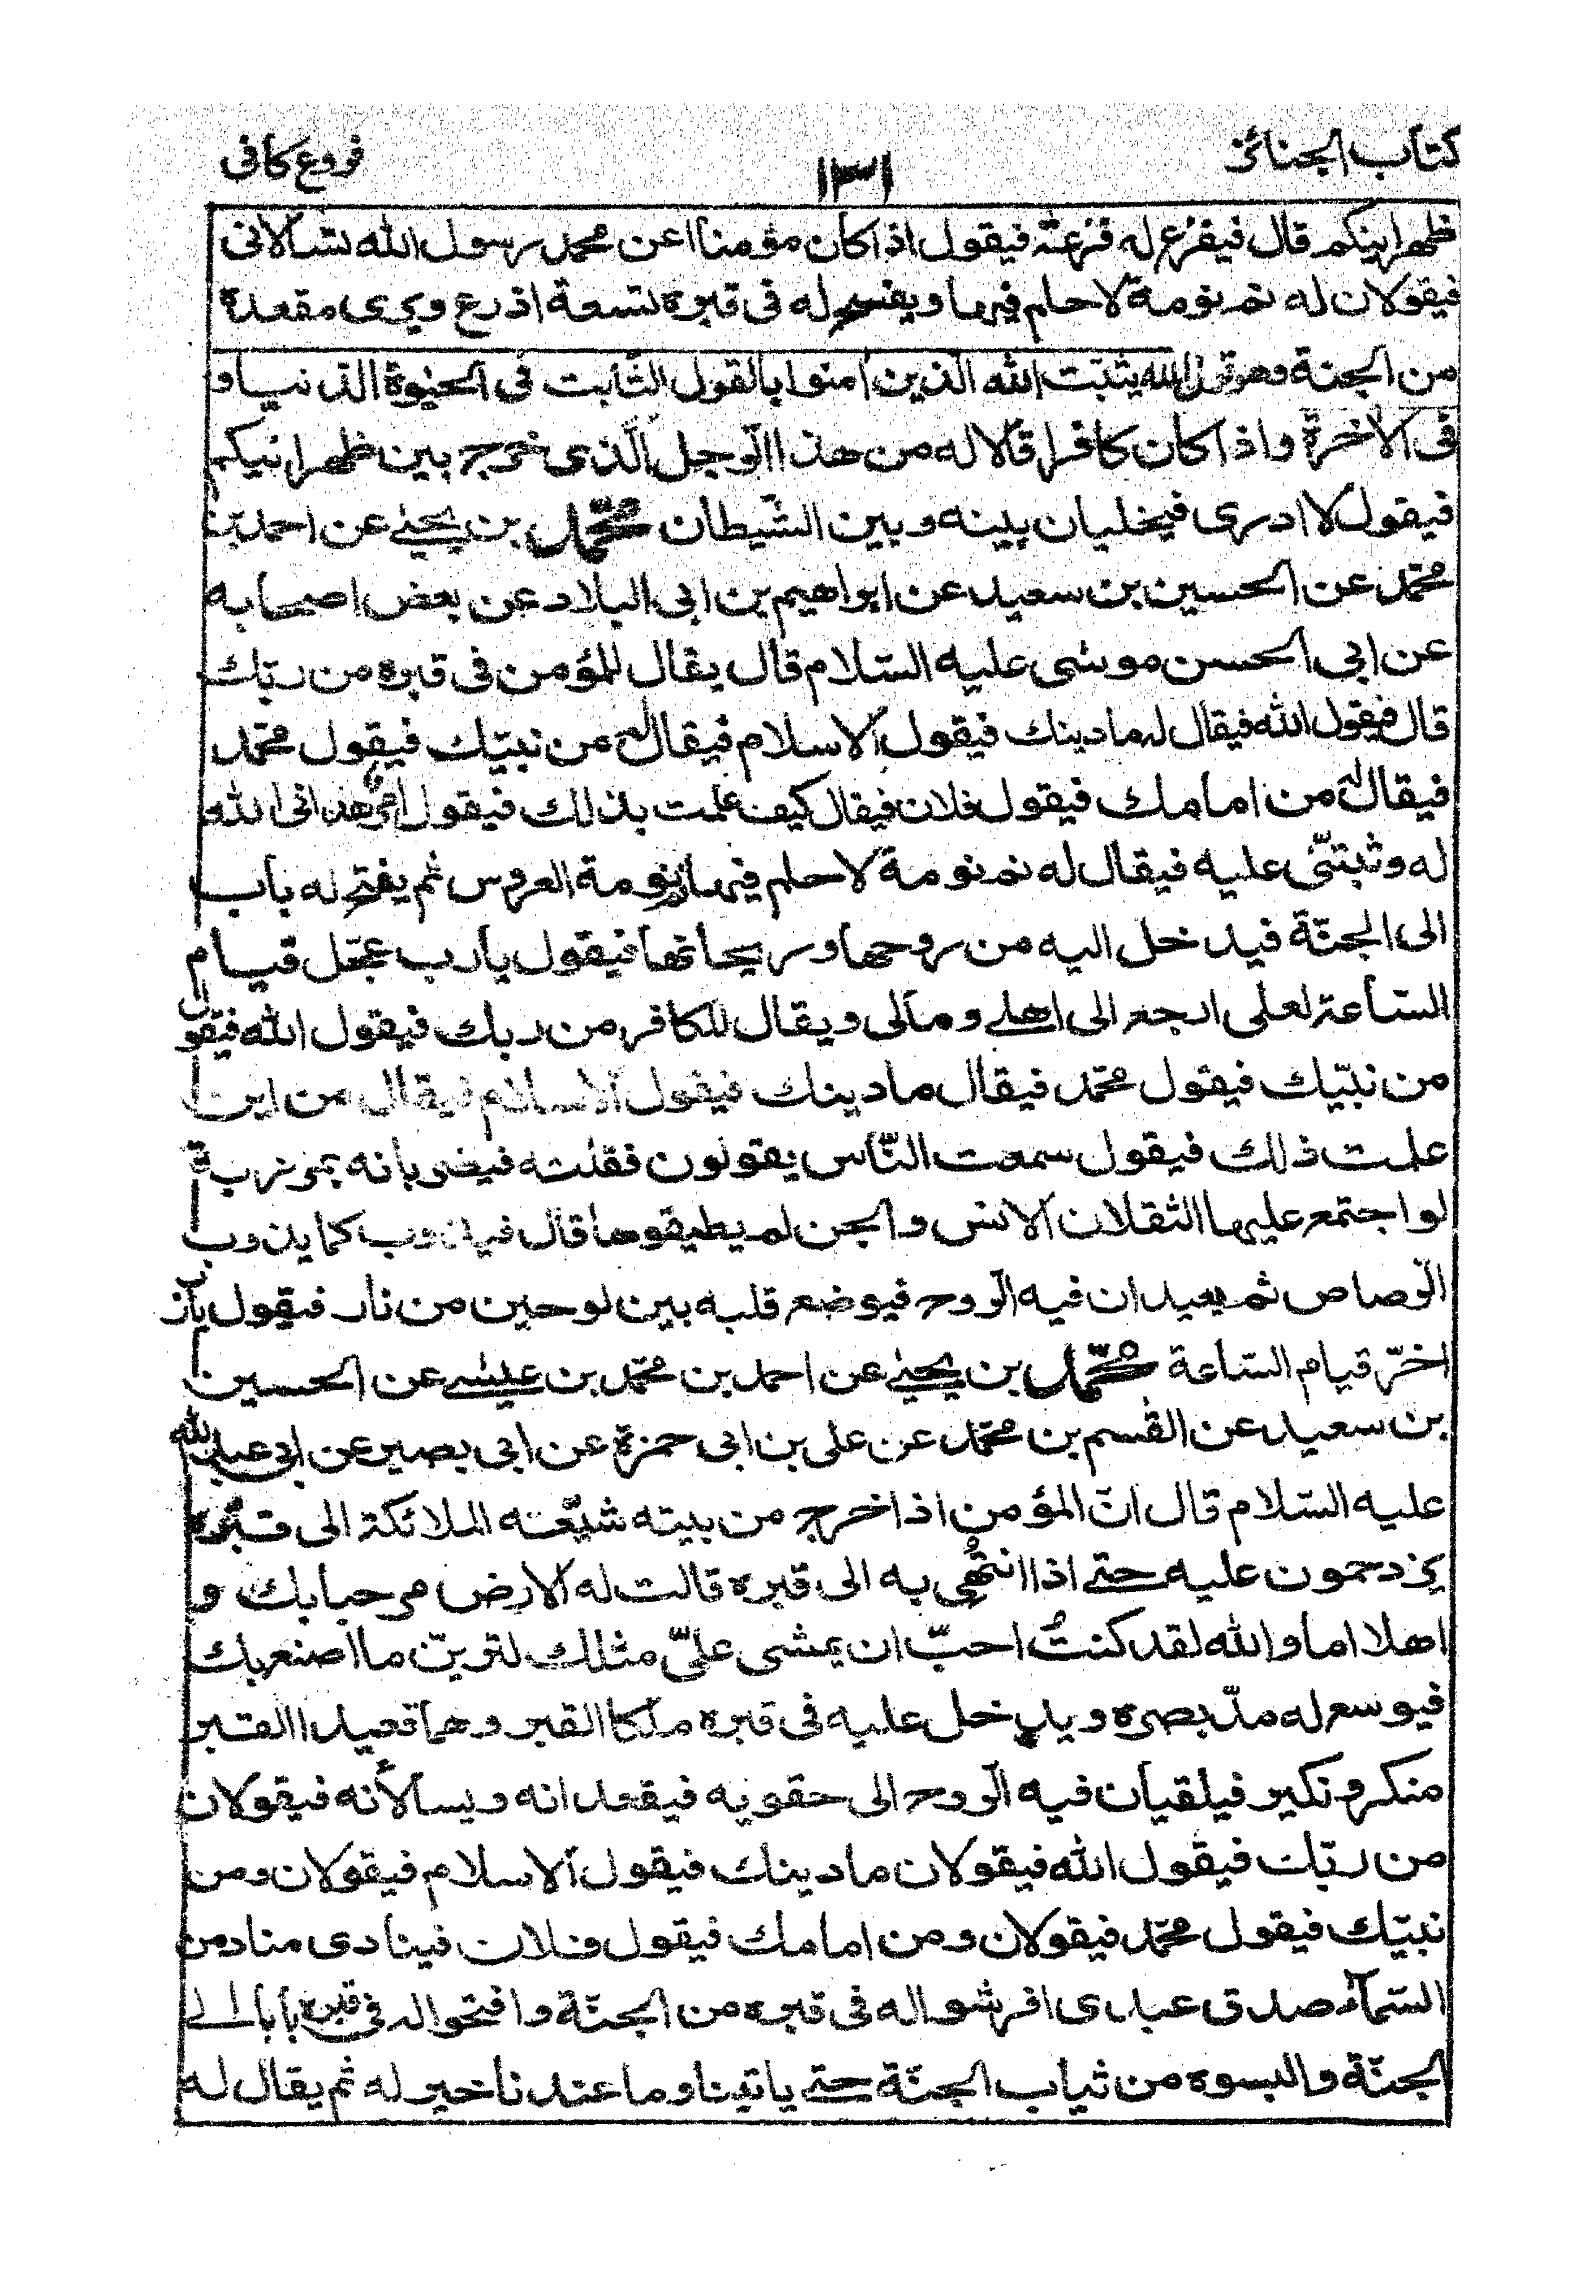 كتاب الجنائز
١٣١
فروع كافى
ظهرانيكم قال فيفزع له فزعته فيقول اذا كان مؤمنا اعن محمد رسول الله تسألانى
فيقولان له نم نومة لا حلم فيها ويفسح له فى قبره تسعة اذرع ويرى مقعده
من الجنة وهو قول الله يثبّت الله الّذين اٰمنوا بالقول الثّابت فى الحيٰوة الدّنيا و
فى الآخرة واذا كان كافرا قالا له من هذا الرّجل الّذى خرج بين ظهرانيكم
فيقول لا ادرى فيخليان بينه وبين الشّيطان محمّد بن يحيىٰ عن احمد بن
محمّد عن الحسين بن سعيد عن ابراهيم بن ابى البلاد عن بعض اصحابه
عن ابى الحسن موسى عليه السّلام قال يقال للمؤمن فى قبره من ربّك
قال فيقول الله فيقال له ما دينك فيقول الاسلام فيقال له من نبيّك فيقول محمّد
فيقال له من امامك فيقول فلان فيقال كيف علمت بذلك فيقول امر هدانى الله
له وثبتنى عليه فيقال له نم نومة لا حلم فيها نومة العروس ثم يفتح له باب
الى الجنّة فيدخل اليه من روحها وريحانها فيقول يا رب عجّل قيام
السّاعة لعلى ارجع الى اهلى ومالى ويقال للكافر من ربك فيقول الله فيقول
من نبيّك فيقول محمّد فيقال ما دينك فيقول الاسلام فيقال من اين
علمت ذلك فيقول سمعت النّاس يقولون فقلته فيضربانه بمرزبة
لو اجتمع عليها الثقلان الانس والجن لم يطيقوها قال فيذوب كما يذوب
الرّصاص ثم يعيدان فيه الرّوح فيوضع قلبه بين لوحين من نار فيقول يا رب
اخّر قيام السّاعة محمّد بن يحيىٰ عن احمد بن محمّد بن عيسىٰ عن الحسين
بن سعيد عن القٰسم بن محمّد عن على بن ابى حمزة عن ابى بصير عن ابى عبد الله
عليه السّلام قال انّ المؤمن اذا اخرج من بيته شيّعته الملائكة الى قبره
يزدحمون عليه حتى اذا انتهى به الى قبره قالت له الارض مرحبا بك و
اهلا اما والله لقد كنت احبّ ان يمشى علىّ مثلك لترينّ ما اصنع بك
فيوسع له مدّ بصره ويدخل عليه فى قبره ملكا القبر وهما قعيدا القبر
منكر ونكير فيلقيان فيه الرّوح الى حقويه فيقعدانه ويسألانه فيقولان
من ربّك فيقول الله فيقولان ما دينك فيقول الاسلام فيقولان ومن
نبيّك فيقول محمّد فيقولان ومن امامك فيقول فلان فينادى مناد من
السّماء صدق عبدى افرشوا له فى قبره من الجنّة وافتحوا له فى قبره بابا الى
الجنّة والبسوه من ثياب الجنّة حتى ياتينا وما عندنا خير له ثم يقال له